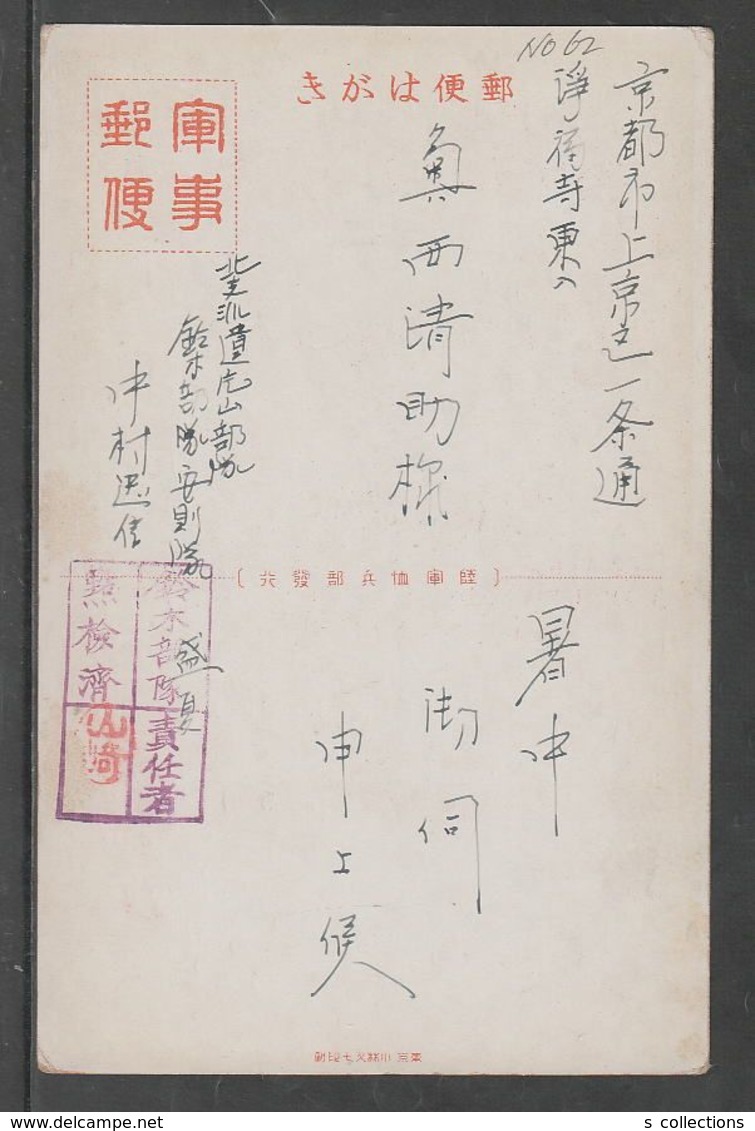 NO 62
郵便はがき
軍事
郵便
京都市上京区一条通
浄福寺東入
奥西清助様
北支派遣尾山部隊
鈴木部隊安則隊
中村
盛夏
〔陸軍恤兵部發行〕
暑中
御伺
申上候
鈴木部隊
責任者
點檢濟
山崎
s collections